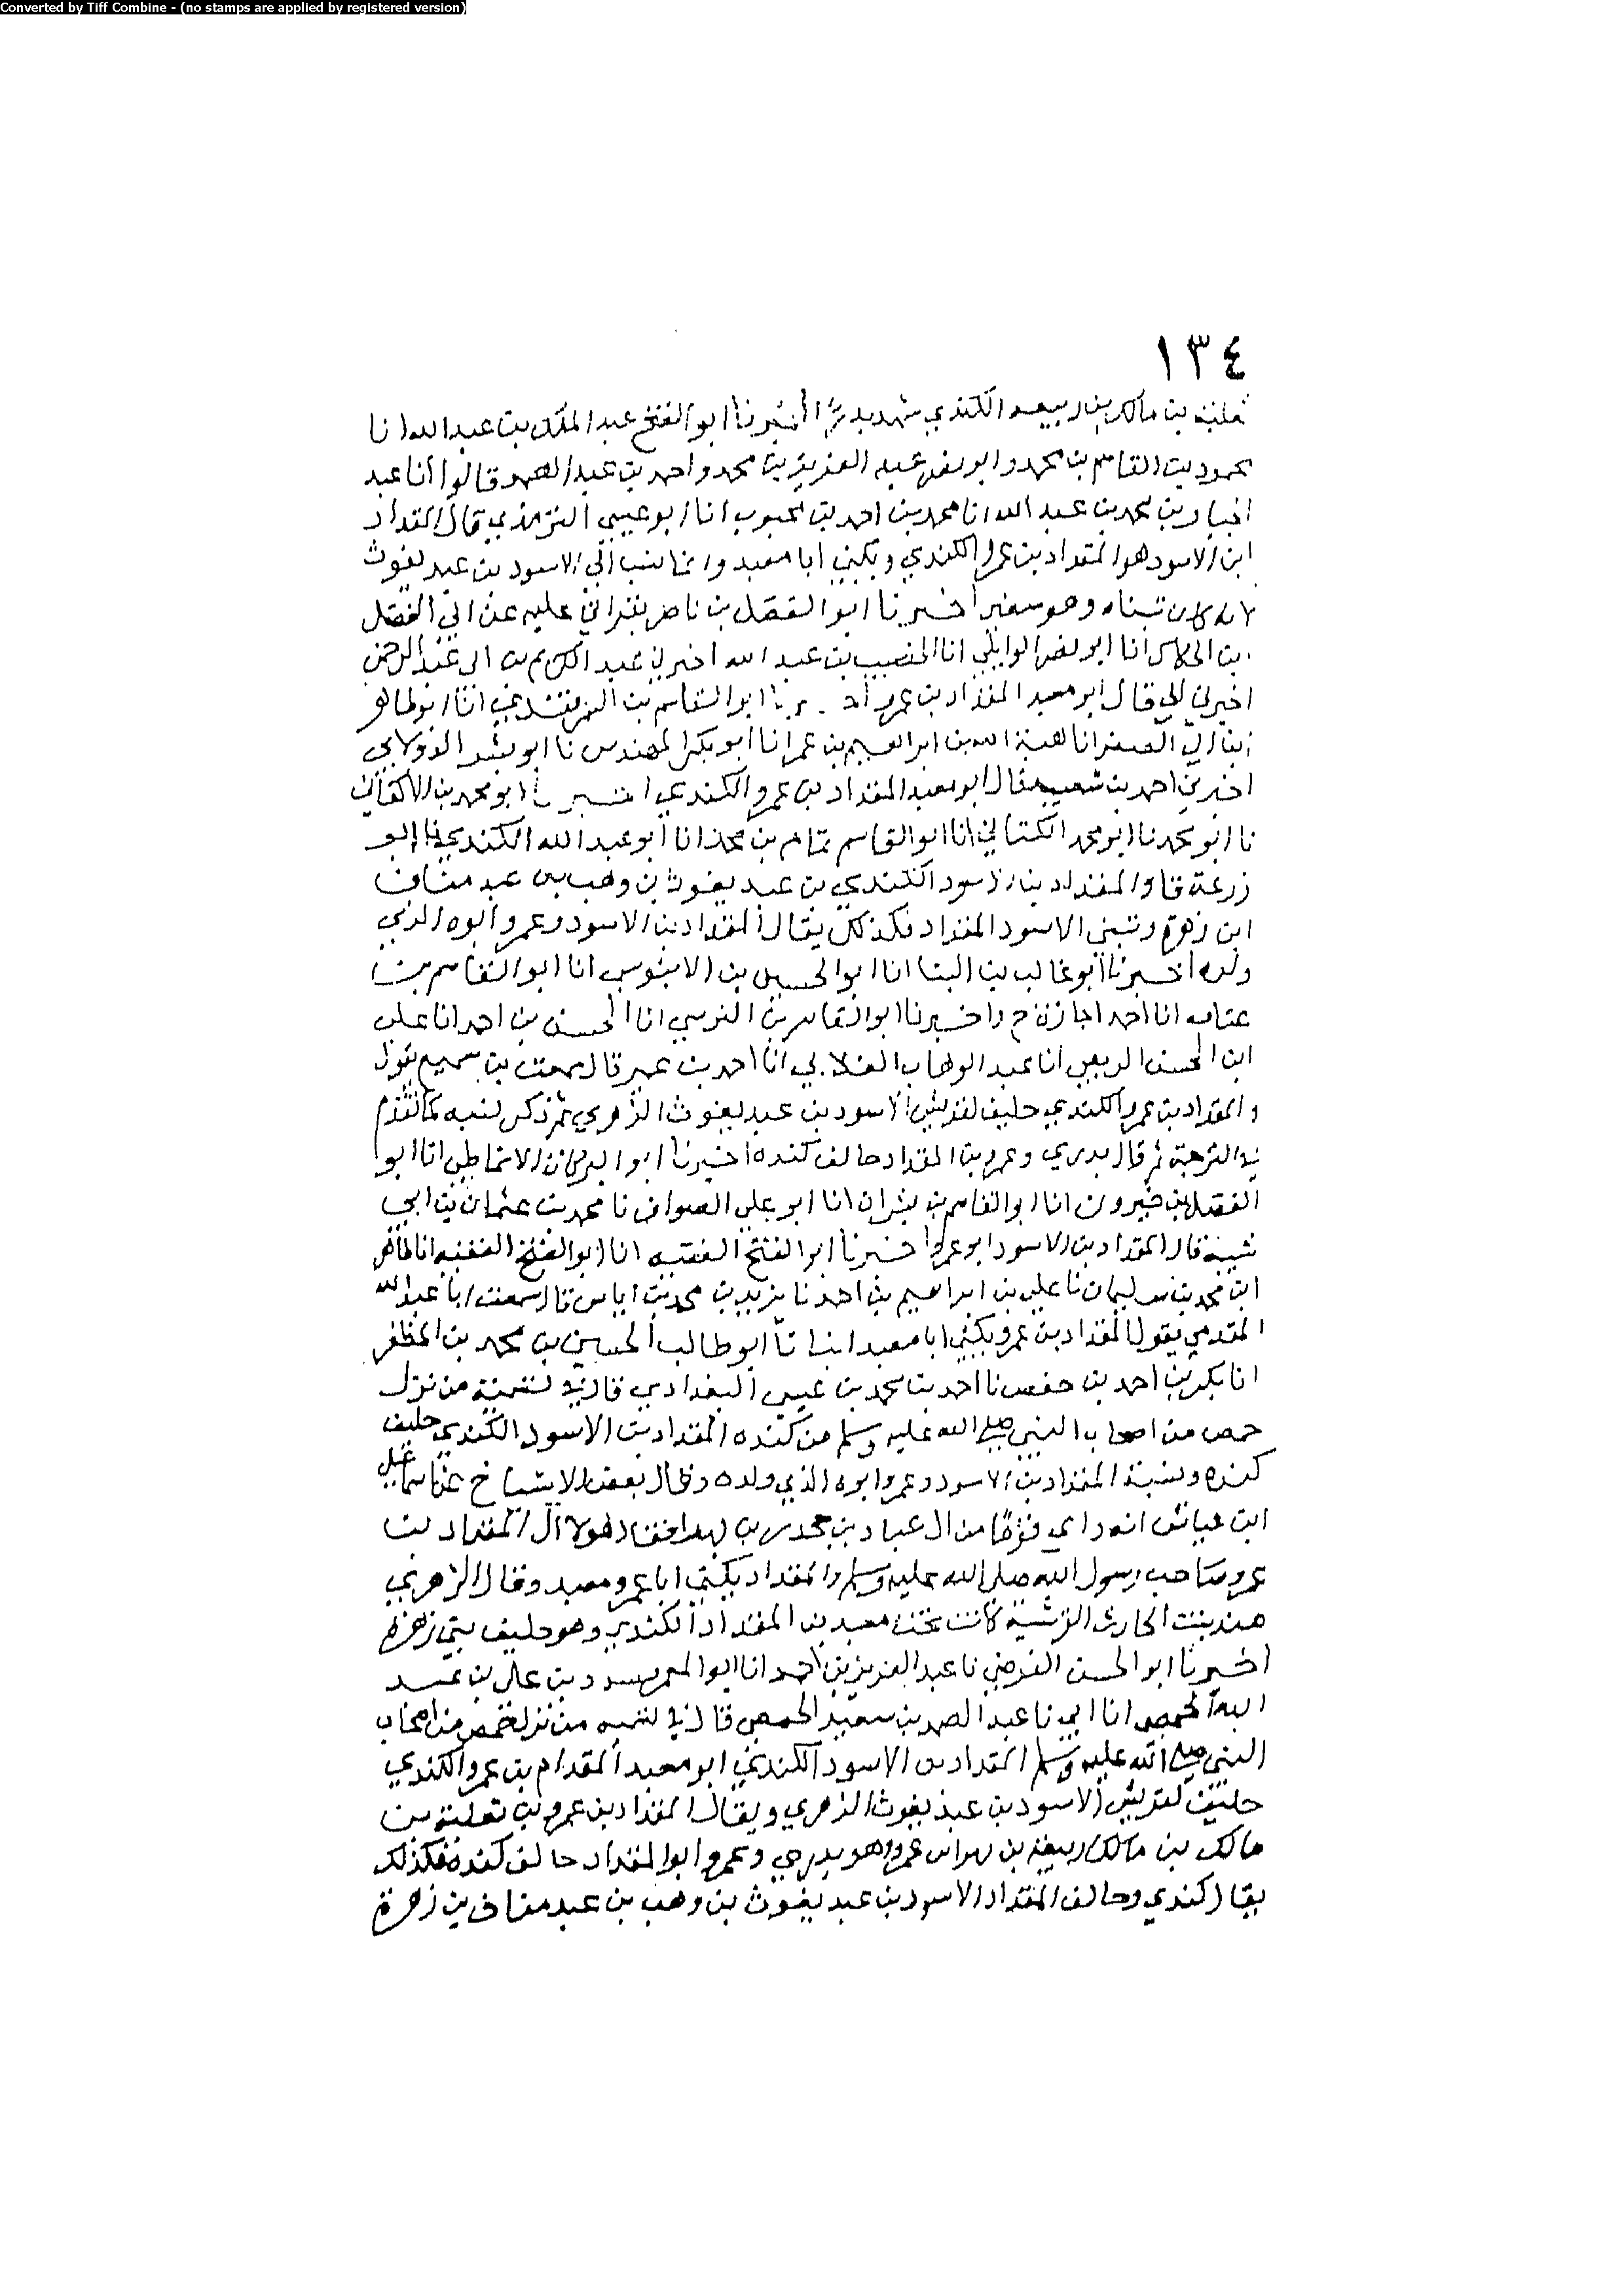 Converted by Tiff Combine - (no stamps are applied by registered version)
١٣٤
ثعلبة بن مالك بن ربيعة الكندي شهد بدرا اخبرنا ابو الفتح عبد الملك بن عبد الله انا
محمود بن القاسم بن محمد وابو نصر عبد العزيز بن محمد واحمد بن عبد الصمد قالوا انا عبد
الجبار بن محمد بن عبد الله انا محمد بن احمد بن محبوب انا ابو عيسى الترمذي قال المقداد
ابن الاسود هو المقداد بن عمرو الكندي ويكنى ابا معبد وانما نسب الى الاسود بن عبد يغوث
لانه كان تبناه وهو صغير اخبرنا ابو الفضل بن ناصر بقراتي عليه عن ابي الفضل
بن الحكاك انا ابو نصر الوايلي انا الخصيب بن عبد الله اخبرني عبد الكريم بن ابي عبد الرحمن
اخبرني ابي قال ابو معبد المقداد بن عمرو ابو القاسم بن السمرقندي انا ابو طاهر
ابن ابي الصقر انا هبة الله بن ابراهيم بن عمر انا ابو بكر المهندس نا ابو بشر الدولابي
اخبرني احمد بن شعيب قال ابو معبد المقداد بن عمرو الكندي اخبرنا ابو محمد بن الاكفاني
نا ابو محمد نا ابو محمد الكتاني انا ابو القاسم تمام بن محمد انا ابو عبد الله الكندي نا ابو
زرعة قال المقداد بن الاسود الكندي بن عبد يغوث بن وهب بن عبد مناف
ابن زهرة وتبنى الاسود المقداد فكذلك يقال المقداد بن الاسود وعمرو ابوه الذي
ولده اخبرنا ابو غالب بن البنا انا ابو الحسين بن الابنوسي انا ابو القاسم بن
عتاب انا احمد اجازة ح واخبرنا ابو القاسم بن النرسي انا الحسن بن احمد انا علي
ابن الحسن الربعي انا عبد الوهاب الكلابي انا احمد بن عمير قال سمعت بن سميع يقول
والمقداد بن عمرو الكندي حليف لقريش الاسود بن عبد يغوث الزهري ثم ذكر نسبه كما تقدم
في الترجمة ثم قال بدري وعمرو بن المقداد حالف كنده اخبرنا ابو البركات الانماطي انا ابو
الفضل بن خيرون انا ابو القاسم بن بشران انا ابو علي الصواف نا محمد بن عثمان بن ابي
شيبة قال المقداد بن الاسود ابو عمرو اخبرنا ابو الفتح الفقيه انا ابو الفتح الفقيه انا طاهر
ابن محمد بن سليمان نا علي بن ابراهيم بن احمد نا يزيد بن محمد بن اياس قال سمعت ابا عبد الله
المقدمي يقول المقداد بن عمرو يكنى ابا معبد انبانا ابو طالب الحسين بن محمد بن المظفر
انا بكر بن احمد بن حفص نا احمد بن محمد بن عيسى البغدادي قال في تسمية من نزل
حمص من اصحاب النبي صلى الله عليه وسلم من كنده المقداد بن الاسود الكندي حليف
كنده ونسبة المقداد بن الاسود وعمرو ابوه الذي ولده وقال بعض الاشياخ عن اسماعيل
ابن عياش انه راى قوما من ال عباد بن فقال هولا آل المقداد بن
عمرو صاحب رسول الله صلى الله عليه وسلم والمقداد يكنى ابا عمرو معبد وقال الزهري
هند بنت الحارث القرشية كانت تحت معبد بن المقداد الكندي وهو حليف بني زهرة
اخبرنا ابو الحسن الفرضي نا عبد العزيز بن احمد انا ابو المعمر مسدد بن علي بن عبد
الله الحمصي انا ابي نا عبد الصمد بن سعيد الحمصي قال في تسميه من نزل حمص من اصحاب
النبي صلى الله عليه وسلم المقداد بن الاسود الكندي ابو معبد المقدام بن عمرو الكندي
حليف لقريش الاسود بن عبد يغوث الزهري ويقال المقداد بن عمرو بن ثعلبة بن
مالك بن مالك ربيعة بن عمرو هو بدري وعمرو ابو المقداد حالف كندة فكذلك
يقال كندي وحالف المقداد الاسود بن عبد يغوث بن وهب بن عبد مناف بن زهرة